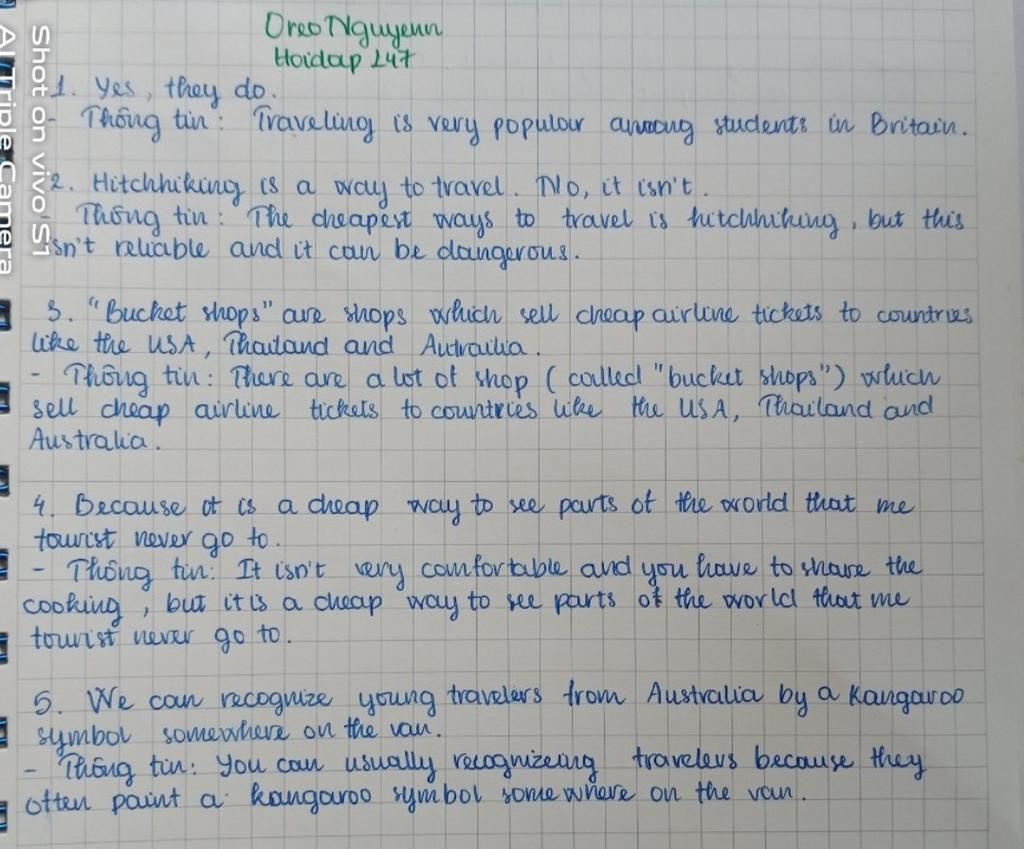 Oreo Nguyenn
Hoidap 247
1. Yes, they do.
- Thông tin: Traveling is very popular among students in Britain.
2. Hitchhiking is a way to travel. No, it isn't.
- Thông tin: The cheapest ways to travel is hitchhiking, but this
isn't reliable and it can be dangerous.
3. "Bucket shops" are shops which sell cheap airline tickets to countries
like the USA, Thailand and Autrailia.
- Thông tin: There are a lot of shop (called "bucket shops") which
sell cheap airline tickets to countries like the USA, Thailand and
Australia.
4. Because it is a cheap way to see parts of the world that me
tourist never go to.
- Thông tin: It isn't very comfortable and you have to share the
cooking, but it is a cheap way to see parts of the world that me
tourist never go to.
5. We can recognize young travelers from Australia by a Kangaroo
symbol somewhere on the van.
- Thông tin: You can usually recognizeing travelers because they
often paint a kangaroo symbol somewhere on the van.
Shot on vivo S1
AI Triple Camera